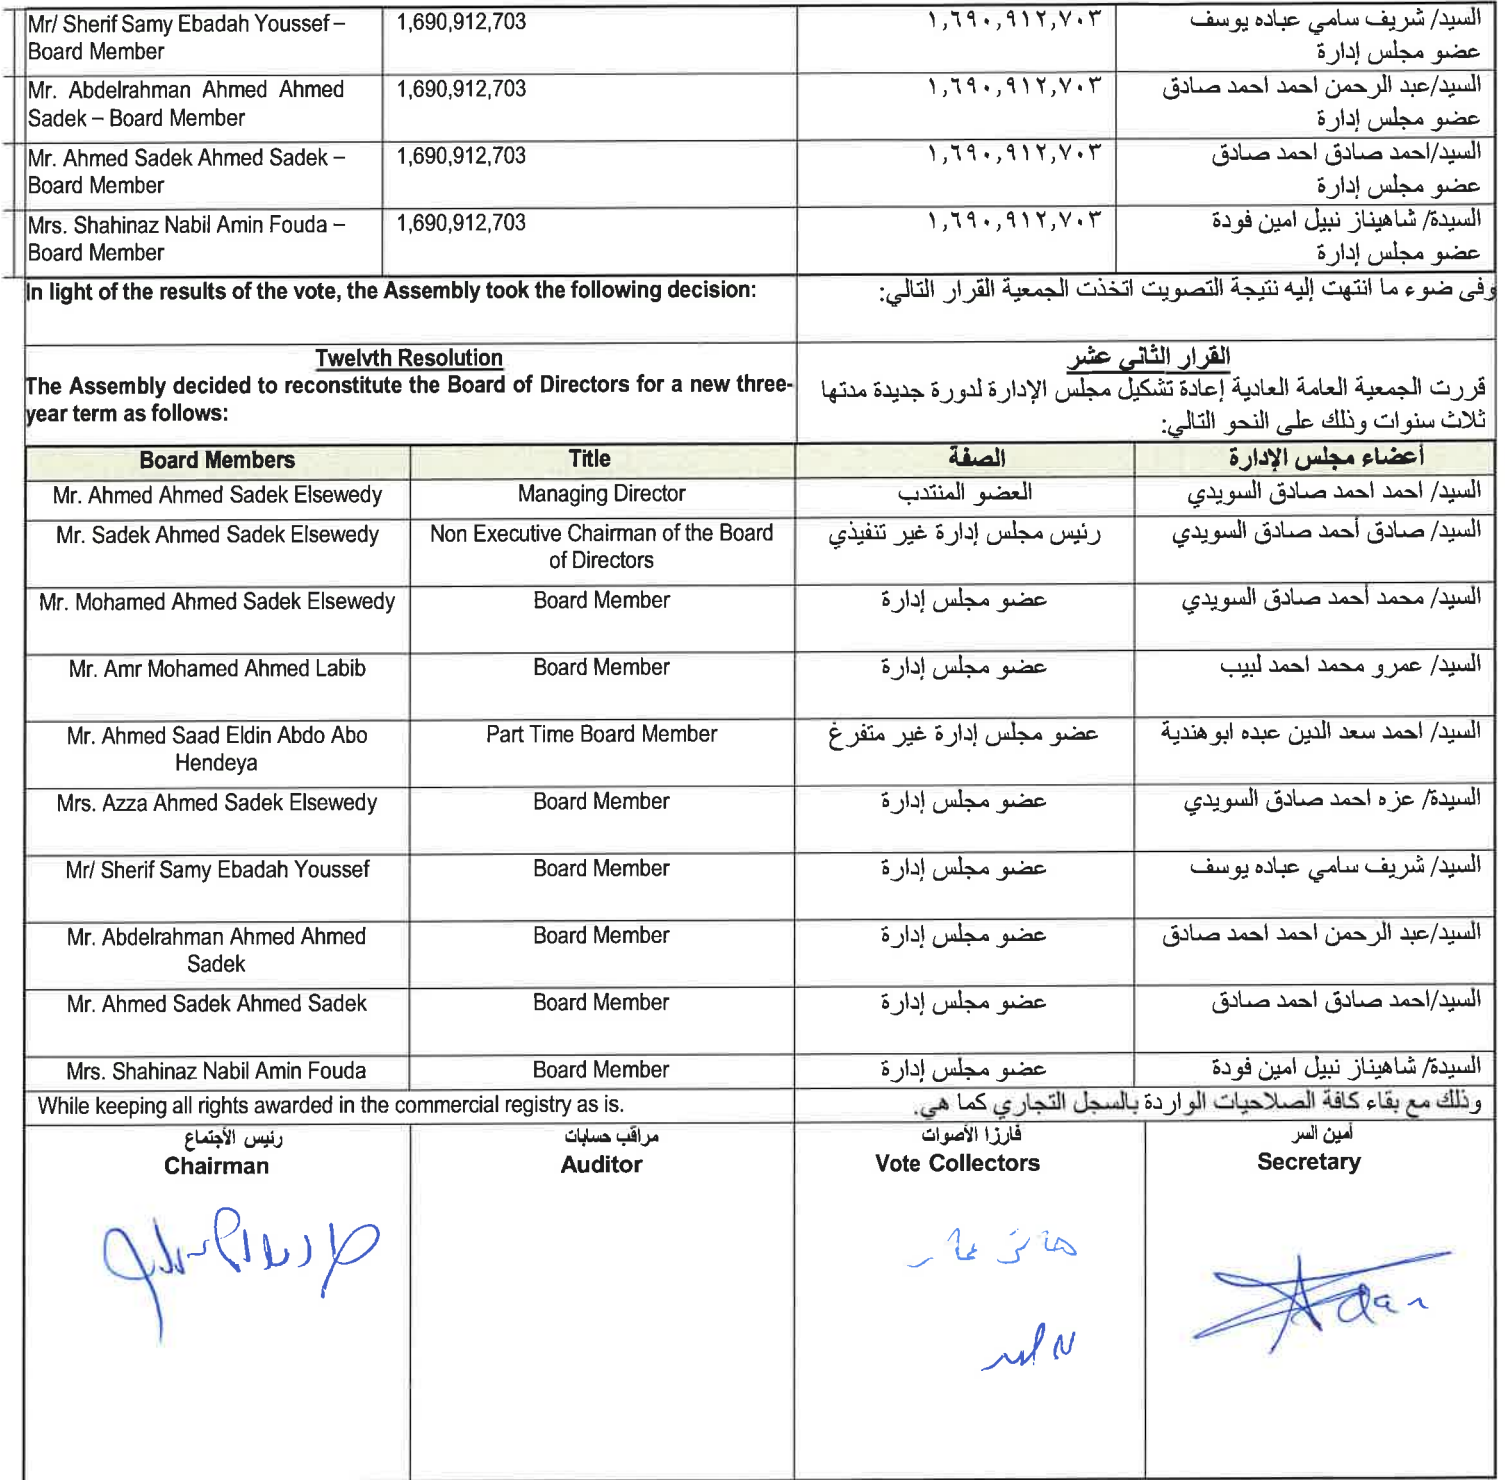 Mr/ Sherif Samy Ebadah Youssef – 1,690,912,703 ١,٦٩٠,٩١٢,٧٠٣ السيد/ شريف سامي عباده يوسف
Board Member عضو مجلس إدارة
Mr. Abdelrahman Ahmed Ahmed 1,690,912,703 ١,٦٩٠,٩١٢,٧٠٣ السيد/عبد الرحمن احمد احمد صادق
Sadek – Board Member عضو مجلس إدارة
Mr. Ahmed Sadek Ahmed Sadek – 1,690,912,703 ١,٦٩٠,٩١٢,٧٠٣ السيد/احمد صادق احمد صادق
Board Member عضو مجلس إدارة
Mrs. Shahinaz Nabil Amin Fouda – 1,690,912,703 ١,٦٩٠,٩١٢,٧٠٣ السيدة/ شاهيناز نبيل امين فودة
Board Member عضو مجلس إدارة
In light of the results of the vote, the Assembly took the following decision: وفى ضوء ما انتهت إليه نتيجة التصويت اتخذت الجمعية القرار التالي:
Twelvth Resolution القرار الثاني عشر
The Assembly decided to reconstitute the Board of Directors for a new three- قررت الجمعية العامة العادية إعادة تشكيل مجلس الإدارة لدورة جديدة مدتها
year term as follows: ثلاث سنوات وذلك على النحو التالي:
Board Members Title الصفة أعضاء مجلس الإدارة
Mr. Ahmed Ahmed Sadek Elsewedy Managing Director العضو المنتدب السيد/ احمد احمد صادق السويدي
Mr. Sadek Ahmed Sadek Elsewedy Non Executive Chairman of the Board رئيس مجلس إدارة غير تنفيذي السيد/ صادق أحمد صادق السويدي
of Directors
Mr. Mohamed Ahmed Sadek Elsewedy Board Member عضو مجلس إدارة السيد/ محمد أحمد صادق السويدي
Mr. Amr Mohamed Ahmed Labib Board Member عضو مجلس إدارة السيد/ عمرو محمد احمد لبيب
Mr. Ahmed Saad Eldin Abdo Abo Part Time Board Member عضو مجلس إدارة غير متفرغ السيد/ احمد سعد الدين عبده ابو هندية
Hendeya
Mrs. Azza Ahmed Sadek Elsewedy Board Member عضو مجلس إدارة السيدة/ عزه احمد صادق السويدي
Mr/ Sherif Samy Ebadah Youssef Board Member عضو مجلس إدارة السيد/ شريف سامي عباده يوسف
Mr. Abdelrahman Ahmed Ahmed Board Member عضو مجلس إدارة السيد/عبد الرحمن احمد احمد صادق
Sadek
Mr. Ahmed Sadek Ahmed Sadek Board Member عضو مجلس إدارة السيد/احمد صادق احمد صادق
Mrs. Shahinaz Nabil Amin Fouda Board Member عضو مجلس إدارة السيدة/ شاهيناز نبيل امين فودة
While keeping all rights awarded in the commercial registry as is. وذلك مع بقاء كافة الصلاحيات الواردة بالسجل التجاري كما هي.
رئيس الأجتماع مراقب حسابات فارزا الأصوات أمين السر
Chairman Auditor Vote Collectors Secretary